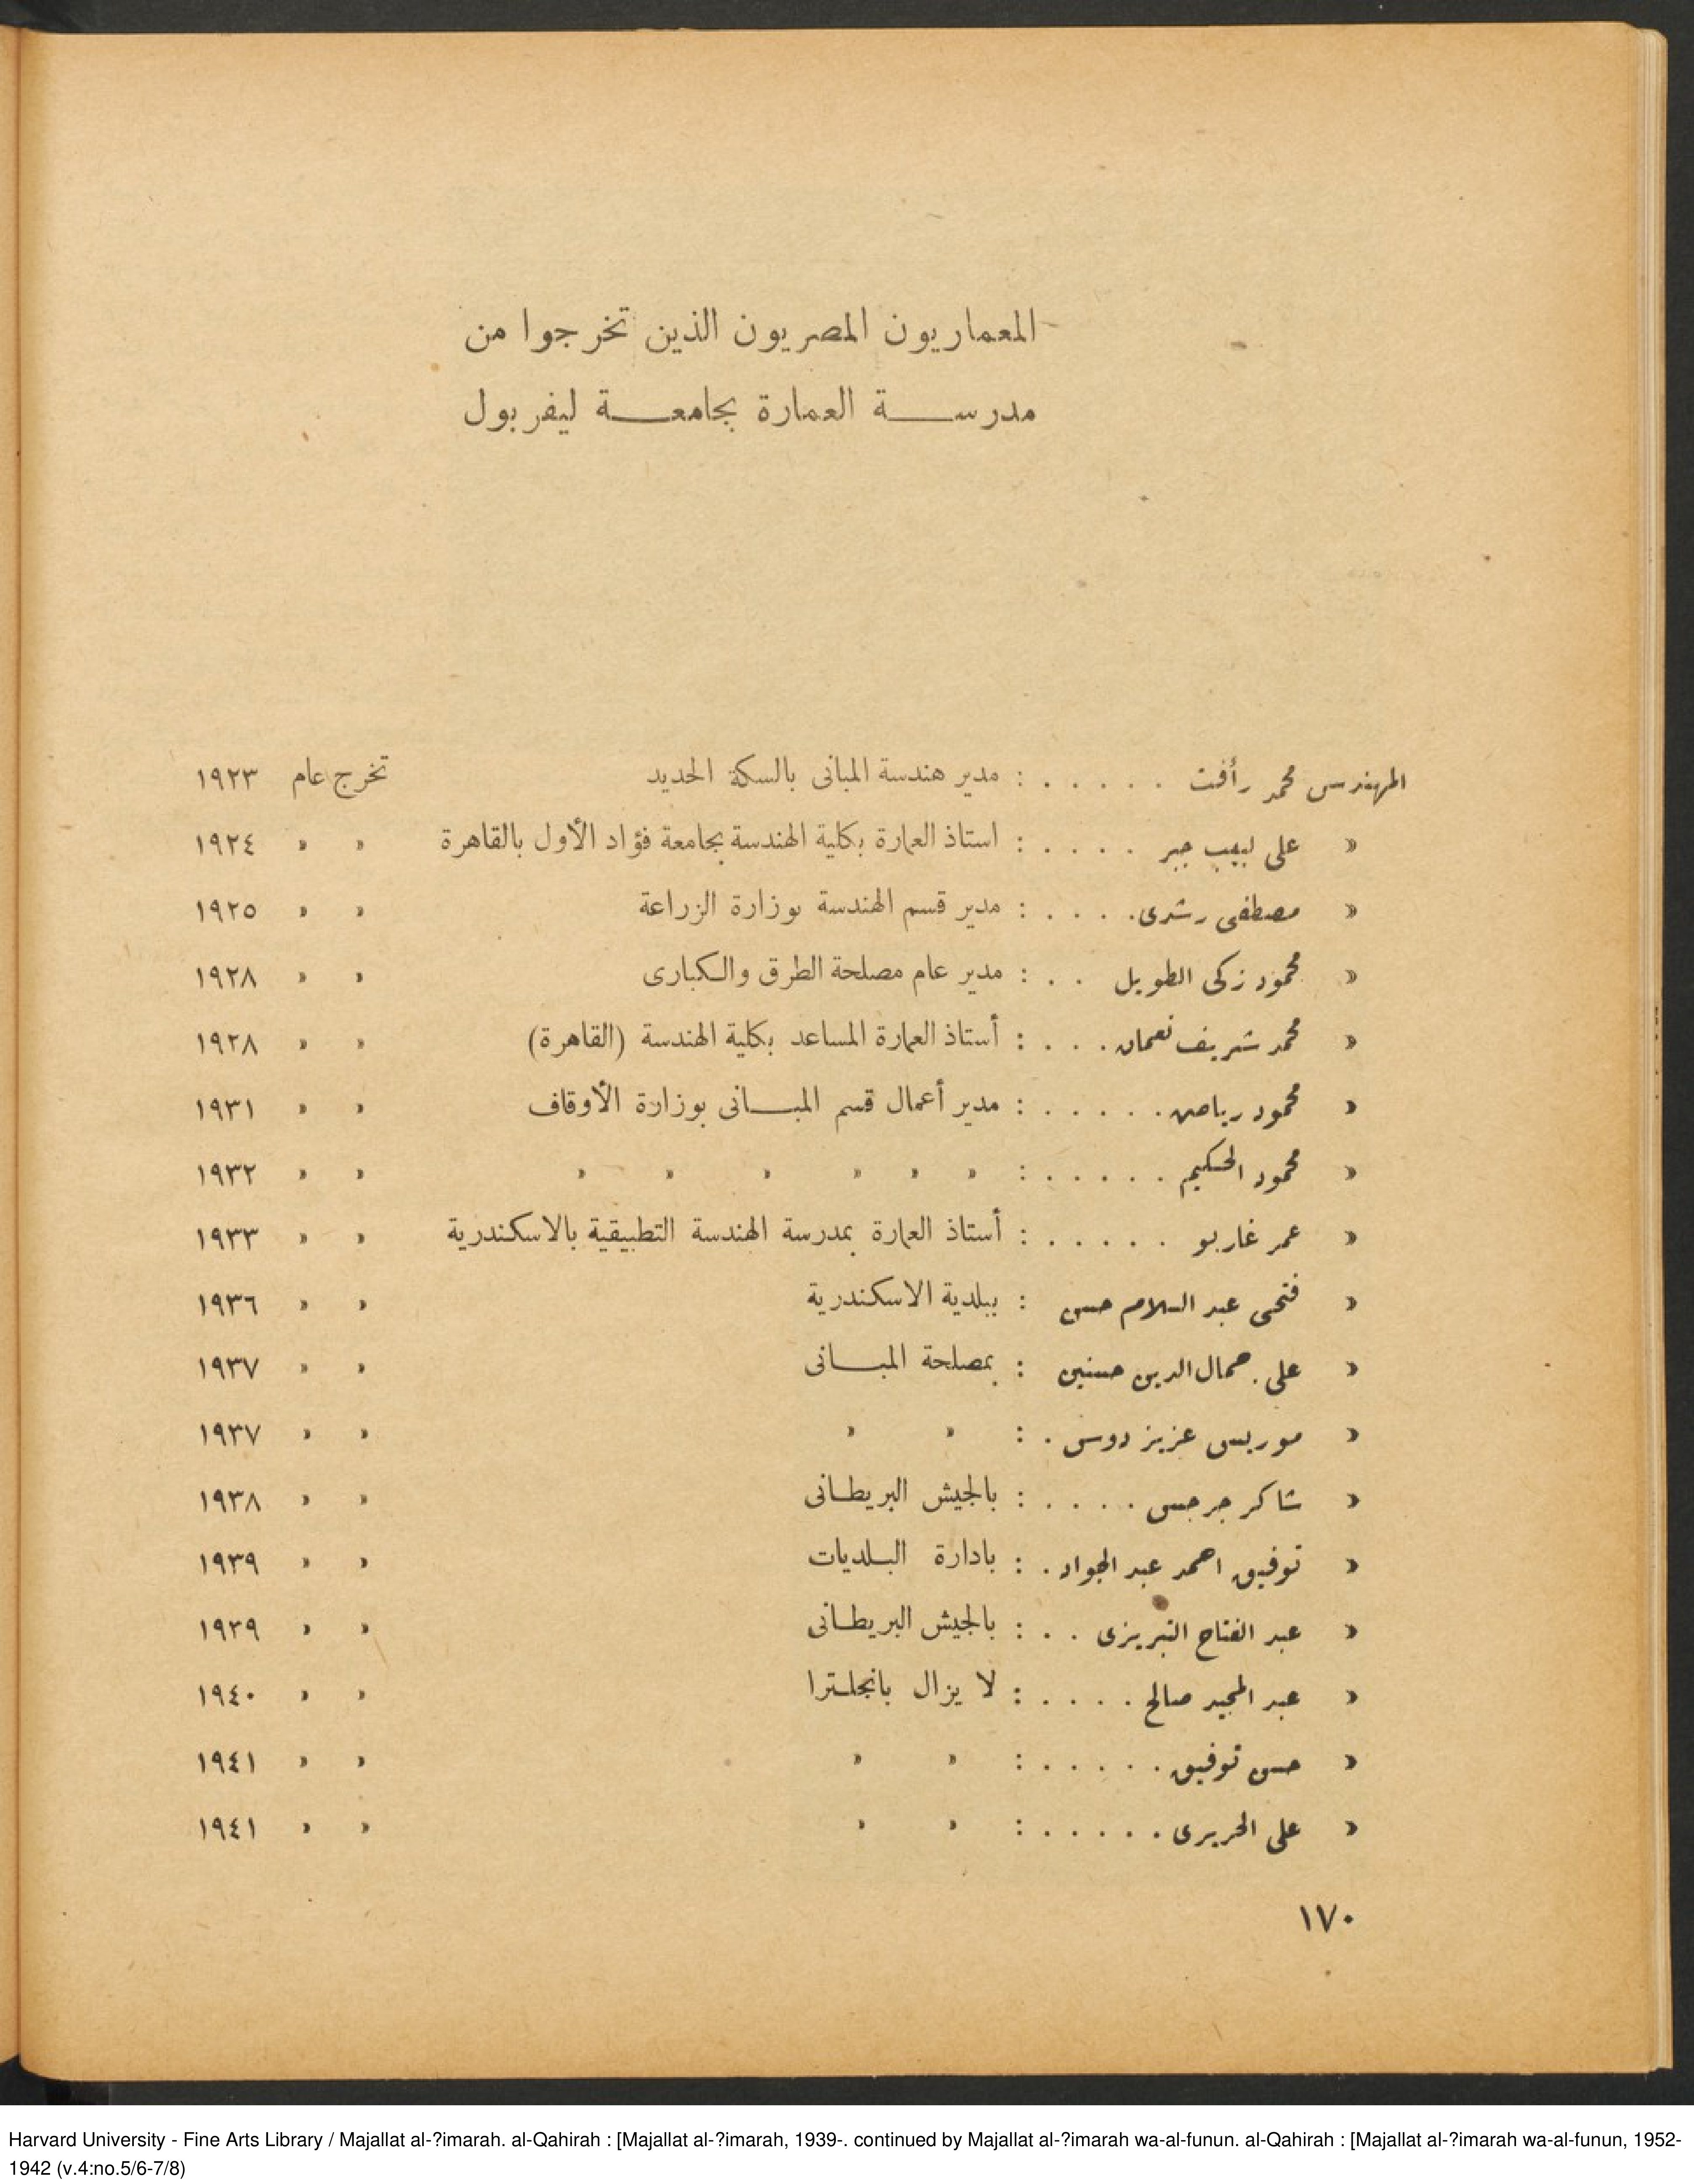 المعماريون المصريون الذين تخرجوا من
مدرسة العمارة بجامعة ليفربول
المهندس محمد رأفت . . . . . : مدير هندسة المبانى بالسكة الحديد تخرج عام ١٩٢٣
» على لبيب جبر . . . . : استاذ العمارة بكلية الهندسة بجامعة فؤاد الأول بالقاهرة » » ١٩٢٤
» مصطفى رشدى . . . . : مدير قسم الهندسة بوزارة الزراعة » » ١٩٢٥
» محمود زكى الطويل . . : مدير عام مصلحة الطرق والكبارى » » ١٩٢٨
» محمد شريف نعمان . . . : أستاذ العمارة المساعد بكلية الهندسة (القاهرة) » » ١٩٢٨
» محمود رياض . . . . . : مدير أعمال قسم المبانى بوزارة الأوقاف » » ١٩٣١
» محمود الحكيم . . . . . : » » » » » » » » ١٩٣٢
» عمر غاربو . . . . . : أستاذ العمارة بمدرسة الهندسة التطبيقية بالاسكندرية » » ١٩٣٣
» فتحى عبد السلام حسن : ببلدية الاسكندرية » » ١٩٣٦
» على جمال الدين حسنين : بمصلحة المبانى » » ١٩٣٧
» موريس عزيز دوس . : » » » » ١٩٣٧
» شاكر جرجس . . . . : بالجيش البريطانى » » ١٩٣٨
» توفيق احمد عبد الجواد . : بادارة البلديات » » ١٩٣٩
» عبد الفتاح التبريزى . . : بالجيش البريطانى » » ١٩٣٩
» عبد المجيد صالح . . . . : لا يزال بانجلترا » » ١٩٤٠
» حسن توفيق . . . . . : » » » » ١٩٤١
» على الحريرى . . . . . : » » » » ١٩٤١
١٧٠
Harvard University - Fine Arts Library / Majallat al-?imarah. al-Qahirah : [Majallat al-?imarah, 1939-. continued by Majallat al-?imarah wa-al-funun. al-Qahirah : [Majallat al-?imarah wa-al-funun, 1952-
1942 (v.4:no.5/6-7/8)